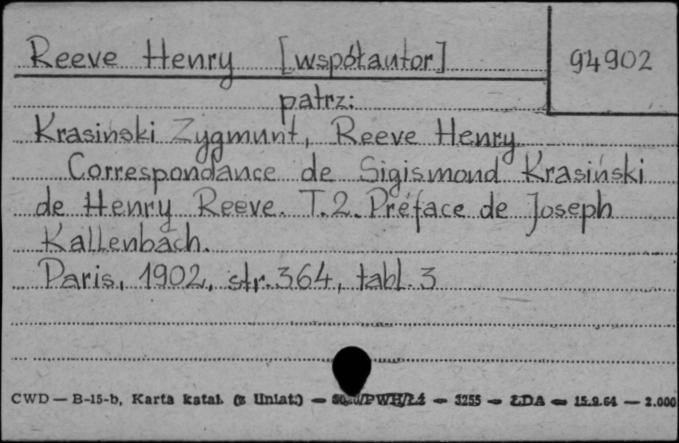 Reeve Henry [współautor] 94902
patrz:
Krasinski Zygmunt, Reeve Henry
Correspondance de Sigismond Krasiński
de Henry Reeve. T.2. Préface de Joseph
Kallenbach.
Paris, 1902, str. 364, tabl. 3
CWD — B-15-b, Karta katal. (z Uniat.) — PWH/Łd — 3255 — ŁDA — 15.9.64 — 2.000